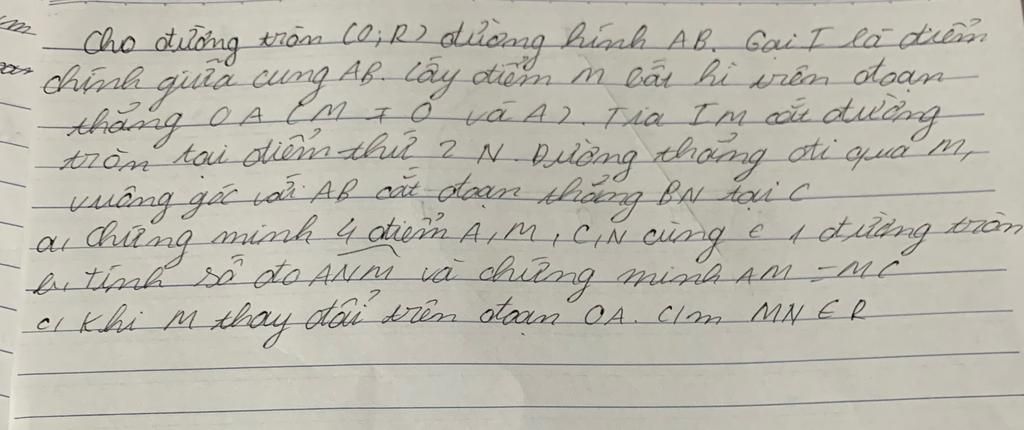 Cho đường tròn (O;R) đường kính AB. Gọi I là điểm
chính giữa cung AB. Lấy điểm M bất kì trên đoạn
thẳng OA (M ≠ O và A). Tia IM cắt đường
tròn tại điểm thứ 2 N. Đường thẳng đi qua M,
vuông góc với AB cắt đoạn thẳng BN tại C
a, Chứng minh 4 điểm A, M, C, N cùng ∈ 1 đường tròn
b, Tính số đo ANM và chứng minh AM = MC
c, Khi M thay đổi trên đoạn OA. C/m MN ∈ R